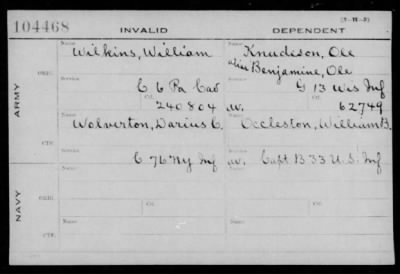 104468
INVALID
DEPENDENT
(3-1195)
Name
Wilkins, William
Name
Knudson, Ole
alias Benjamine, Ole
ARMY
ORIG.
Service
C 6 Pa Cav
Service
G 13 Wis Inf
Ctf.
240804
Ctf.
W. 62749
Name
Wolverton, Darius C.
Name
Occleston, William B.
CTF.
Service
C 76 Ny Inf
Service
W. Capt B 33 U.S. Inf
NAVY
ORIG.
Name
Ctf.
Name
Ctf.
CTF.
Name
Name